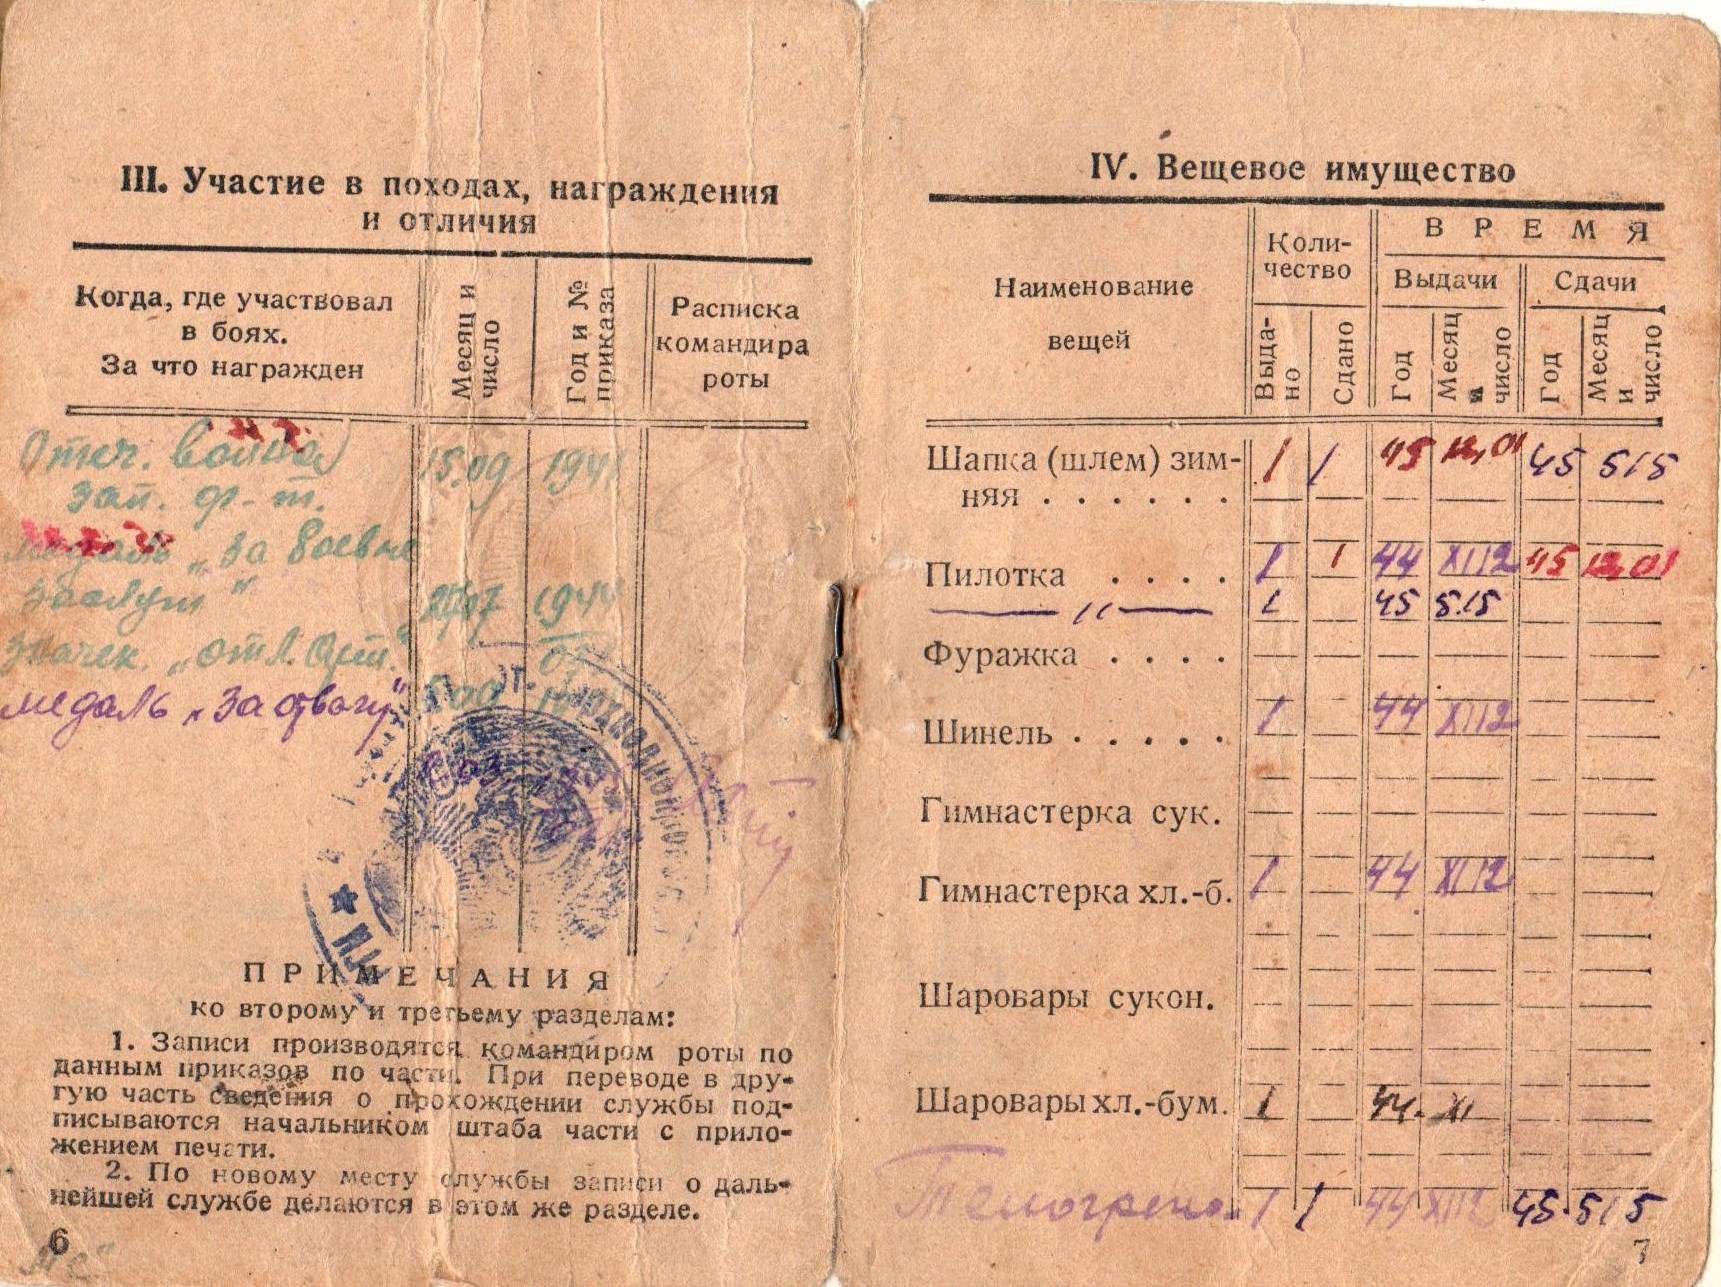 III. Участие в походах, награждения
и отличия
Когда, где участвовал
в боях.
За что награжден
Месяц и
число
Год и №
приказа
Расписка
командира
роты
Отеч. война 15.09 1941
зап. фр-т.
медаль „За боевые
заслуги" 27/07 1944
Значек „отл. Арт."
медаль „За отвагу"
ПРИМЕЧАНИЯ
ко второму и третьему разделам:
1. Записи производятся командиром роты по
данным приказов по части. При переводе в дру-
гую часть сведения о прохождении службы под-
писываются начальником штаба части с прило-
жением печати.
2. По новому месту службы записи о даль-
нейшей службе делаются в этом же разделе.
6
IV. Вещевое имущество
Наименование
вещей
Коли-
чество
ВРЕМЯ
Выдачи
Сдачи
Выда-
но
Сдано
Год
Месяц
и
число
Год
Месяц
и
число
Шапка (шлем) зим-
няя . . . . . . 1 1 45 12,01 45 5/5
Пилотка . . . . 1 1 44 XII 2 45 12,01
— 〃 — 1 45 5.15
Фуражка . . . .
Шинель . . . . . 1 44 XII 2
Гимнастерка сук.
Гимнастерка хл.-б. 1 44 XI 12
Шаровары сукон.
Шаровары хл.-бум. 1 44. XI
Телогрейка 1 1 44 XII 2 45. 5/5
7